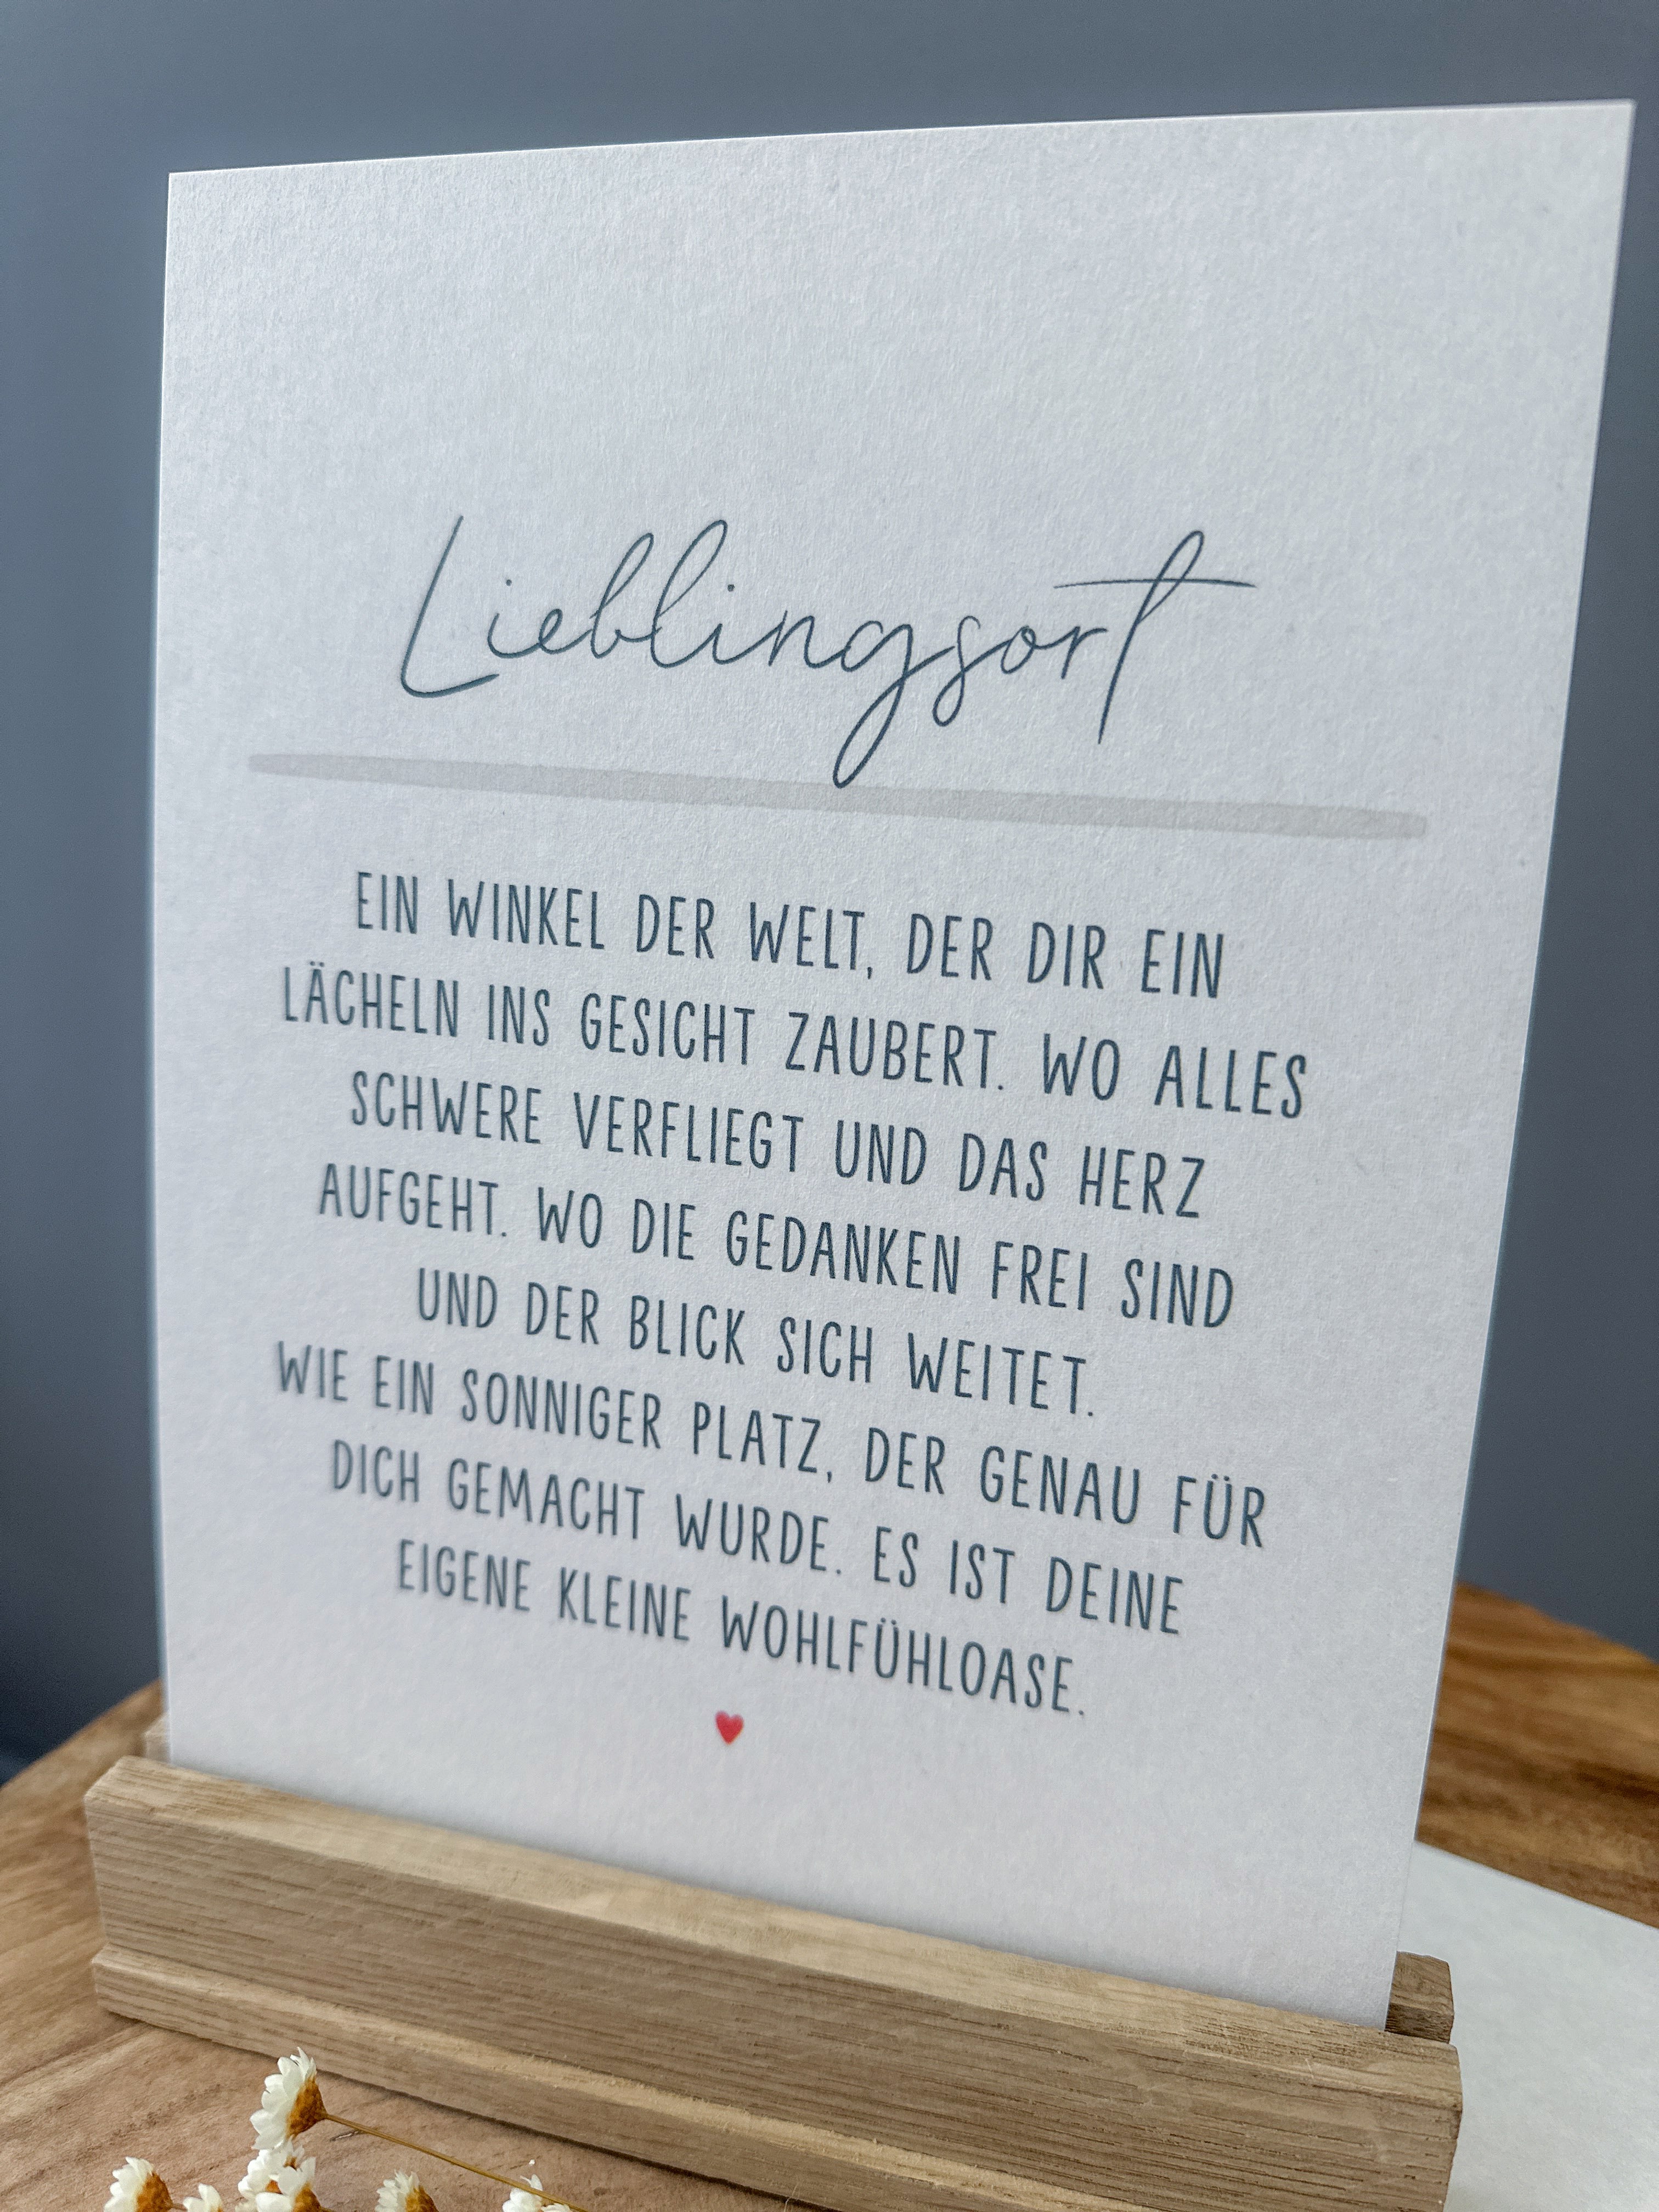 Lieblingsort
EIN WINKEL DER WELT, DER DIR EIN
LÄCHELN INS GESICHT ZAUBERT. WO ALLES
SCHWERE VERFLIEGT UND DAS HERZ
AUFGEHT. WO DIE GEDANKEN FREI SIND
UND DER BLICK SICH WEITET.
WIE EIN SONNIGER PLATZ, DER GENAU FÜR
DICH GEMACHT WURDE. ES IST DEINE
EIGENE KLEINE WOHLFÜHLOASE.